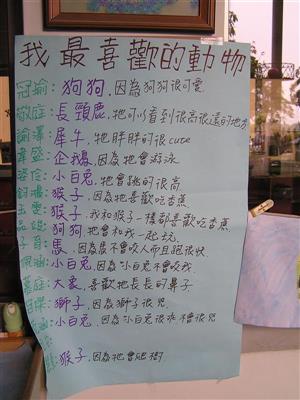 我最喜歡的動物
冠瑜：狗狗，因為狗狗很可愛
敬庭：長頸鹿，牠可以看到很高很遠的地方
諭澤：犀牛，牠胖胖的很cute
韋盛：企鵝，因為牠會游泳
小白兔，牠會跳的很高
猴子，因為牠喜歡吃香蕉
猴子，我和猴子一樣都喜歡吃香蕉
狗狗，牠會和我一起玩
育：馬，因為馬不會咬人而且跑很快
涵：小白兔，因為小白兔不會咬我
庭：大象，喜歡牠長長的鼻子
傑：獅子，因為獅子很兇
涵：小白兔，因為小白兔很乖不會很兇
猴子，因為牠會爬樹